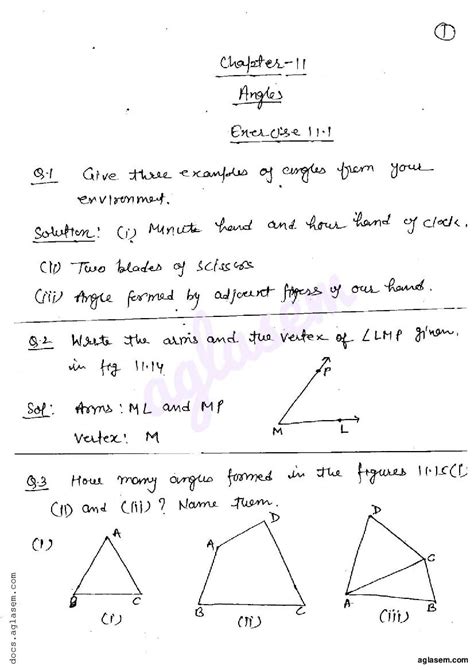 1
Chapter-11
Angles
Exercise 11.1
Q.1 Give three examples of angles from your
environment.
Solution: (i) Minute hand and hour hand of clock.
(ii) Two blades of scissors
(iii) Angle formed by adjacent fingers of our hand.
Q.2 Write the arms and the vertex of ∠LMP given.
in fig 11.14
Sol: Arms: ML and MP
Vertex: M
P
M
L
Q.3 How many angles formed in the figures 11.15(i)
(ii) and (iii)? Name them.
(i)
A
B
C
(i)
A
D
B
C
(ii)
D
C
A
B
(iii)
aglasem
docs.aglasem.com
aglasem.com